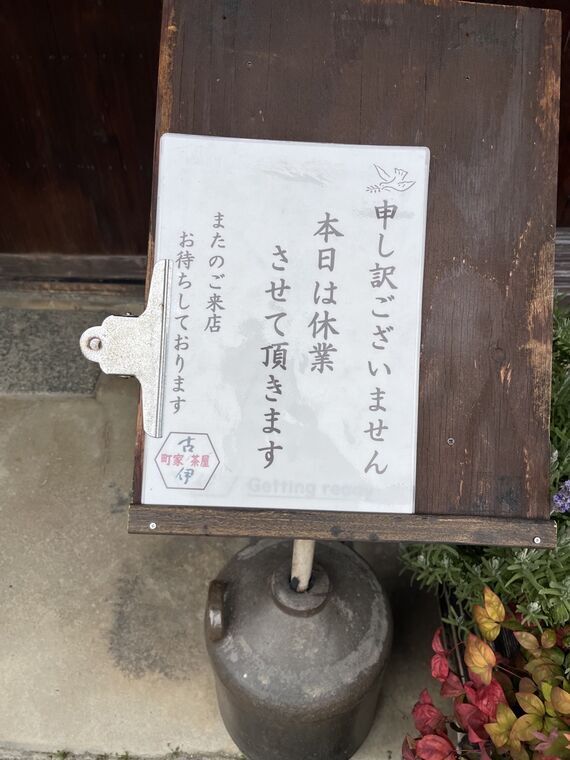 申し訳ございません
本日は休業
させて頂きます
またのご来店
お待ちしております
古
町家 茶屋
伊
Getting ready